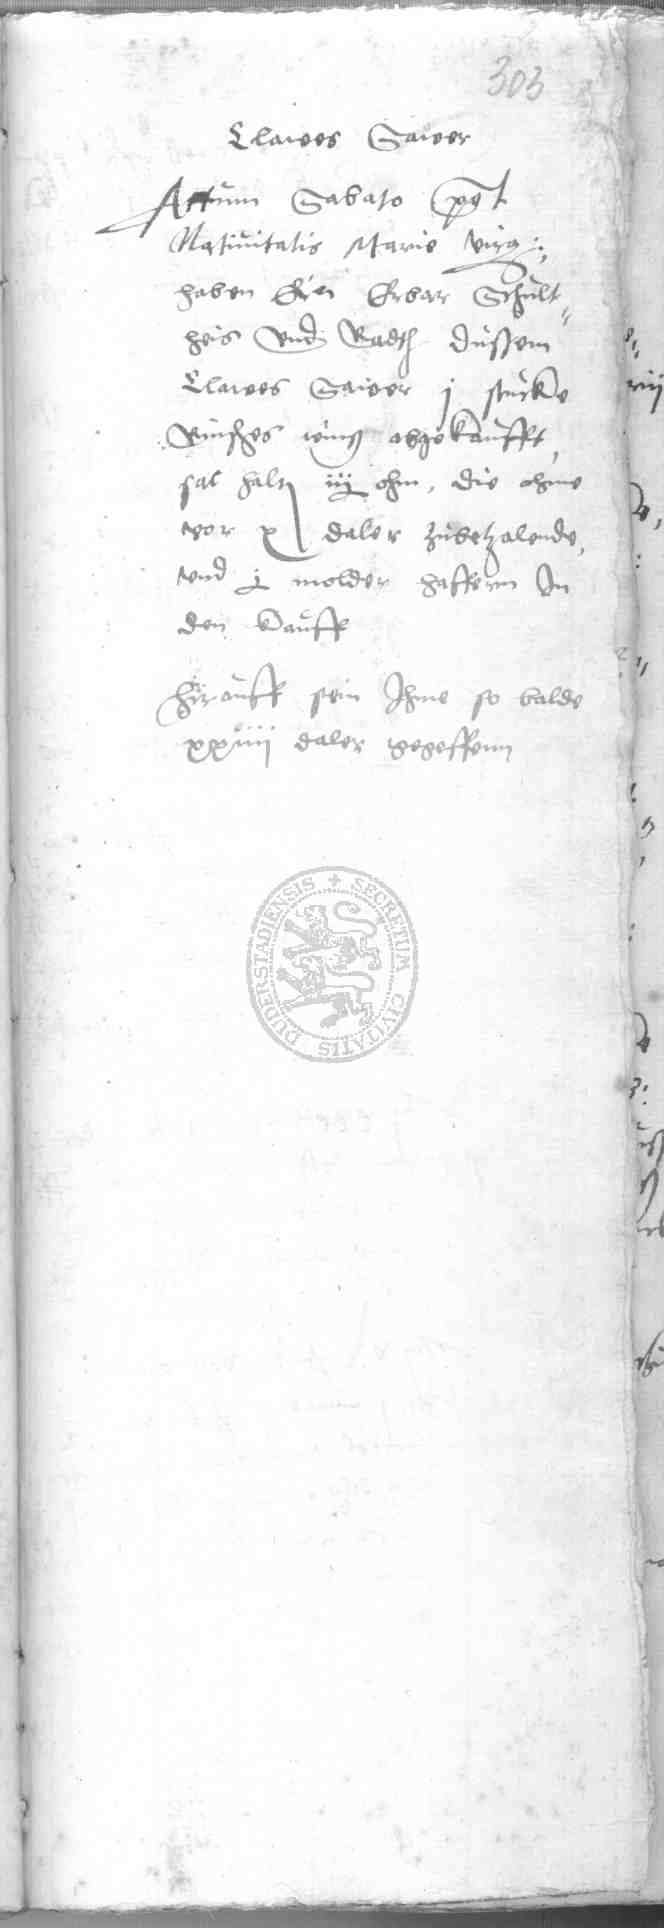 303
Clawes Sawer
Actum Sabato post
Nativitatis Marie virg:
haben Ein Erbar Schult=
heis vnd Radth dussem
Clawes Sawer j stucke
Rinsches wins abgekaufft,
sal halt iiij ohm, die ohme
vor x daler zubetzalende,
vnd j molder haffern In
den kauff
hirauff sein Ihme so balde
xxiiij daler gegeffenn
SECRETUM CIVITATIS DUDERSTADIENSIS